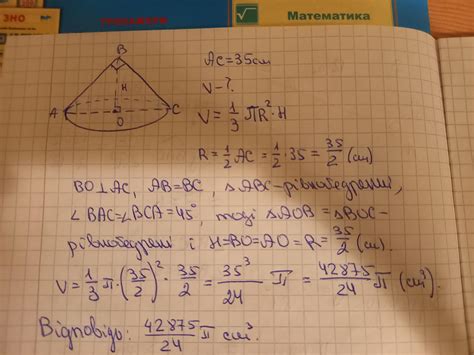 ЗНО
ТРЕНАЖЕРИ
Математика
B
H
A
O
C
AC=35см
V-?
V=1/3 πR²·H
R=1/2 AC=1/2·35=35/2 (см)
BO⊥AC, AB=BC, △ABC-рівнобедрений,
∠BAC=∠BCA=45°, тоді △AOB=△BOC-
рівнобедрені і H=BO=AO=R=35/2 (см).
V=1/3 π·(35/2)²·35/2=35³/24 π=42875/24 π (см³).
Відповідь: 42875/24 π см³.